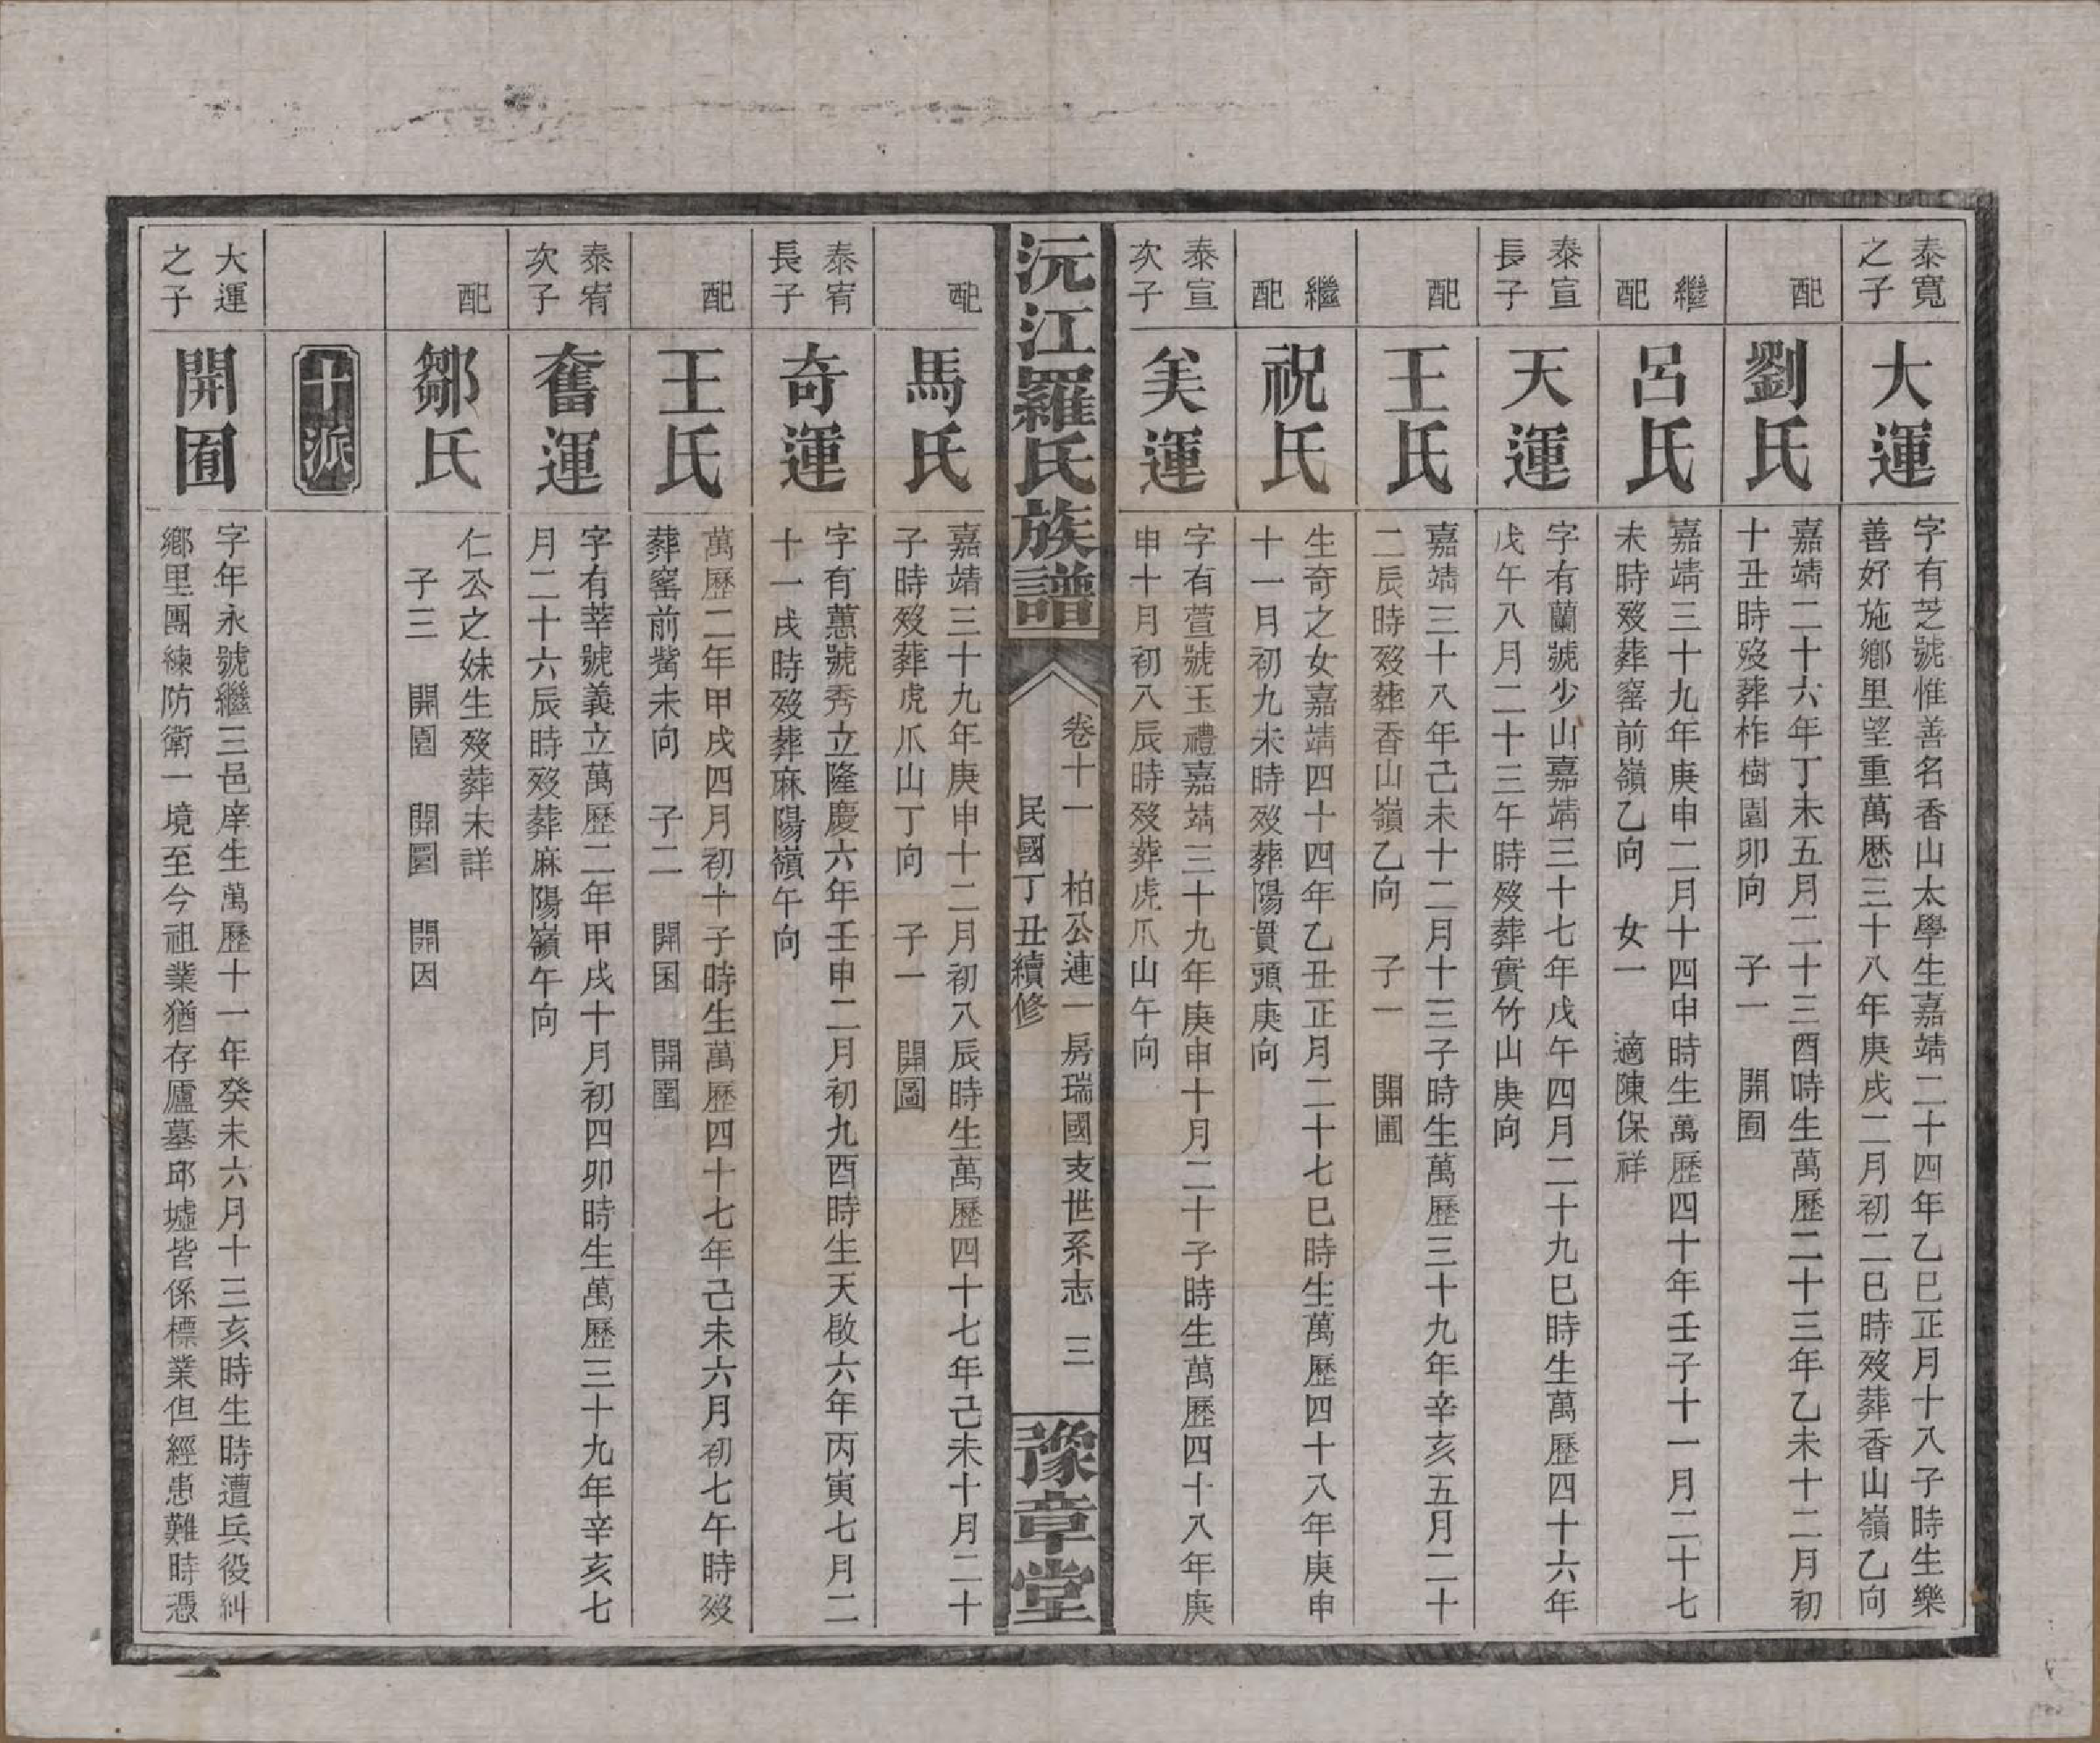 泰寬
之子
大運
字有芝號惟善名香山太學生嘉靖二十四年乙巳正月十八子時生樂
善好施鄉里望重萬懸三十八年庚戌二月初二巳時歿葬香山嶺乙向
配
劉氏
嘉靖二十六年丁未五月二十三酉時生萬歷二十三年乙未十二月初
十丑時歿葬柞樹園卯向　子一　開囿
繼
配
呂氏
嘉靖三十九年庚申二月十四申時生萬歷四十年壬子十一月二十七
未時歿葬窑前嶺乙向　女一　適陳保祥
泰宣
長子
天運
字有蘭號少山嘉靖三十七年戊午四月二十九巳時生萬歷四十六年
戊午八月二十三午時歿葬實竹山庚向
配
王氏
嘉靖三十八年己未十二月十三子時生萬歷三十九年辛亥五月二十
二辰時歿葬香山嶺乙向　子一　開圃
繼
配
祝氏
生奇之女嘉靖四十四年乙丑正月二十七巳時生萬歷四十八年庚申
十一月初九未時歿葬陽貫頭庚向
泰宣
次子
美運
字有萱號玉禮嘉靖三十九年庚申十月二十子時生萬歷四十八年庚
申十月初八辰時歿葬虎爪山午向
沅江羅氏族譜
卷十一　柏公連一房瑞國支世系志　三
民國丁丑續修
豫章堂
配
馬氏
嘉靖三十九年庚申十二月初八辰時生萬歷四十七年己未十月二十
子時歿葬虎爪山丁向　子一　開圖
泰宥
長子
奇運
字有蕙號秀立隆慶六年壬申二月初九酉時生天啟六年丙寅七月二
十一戌時歿葬麻陽嶺午向
配
王氏
萬歷二年甲戌四月初十子時生萬歷四十七年己未六月初七午時歿
葬窑前嘴未向　子二　開囷　開圉
泰宥
次子
奮運
字有莘號義立萬歷二年甲戌十月初四卯時生萬歷三十九年辛亥七
月二十六辰時歿葬麻陽嶺午向
配
鄒氏
仁公之妹生歿葬未詳
子三　開園　開圜　開因
十派
大運
之子
開囿
字年永號繼三邑庠生萬歷十一年癸未六月十三亥時生時遭兵役糾
鄉里團練防衛一境至今祖業猶存廬墓邱墟皆係標業但經患難時憑